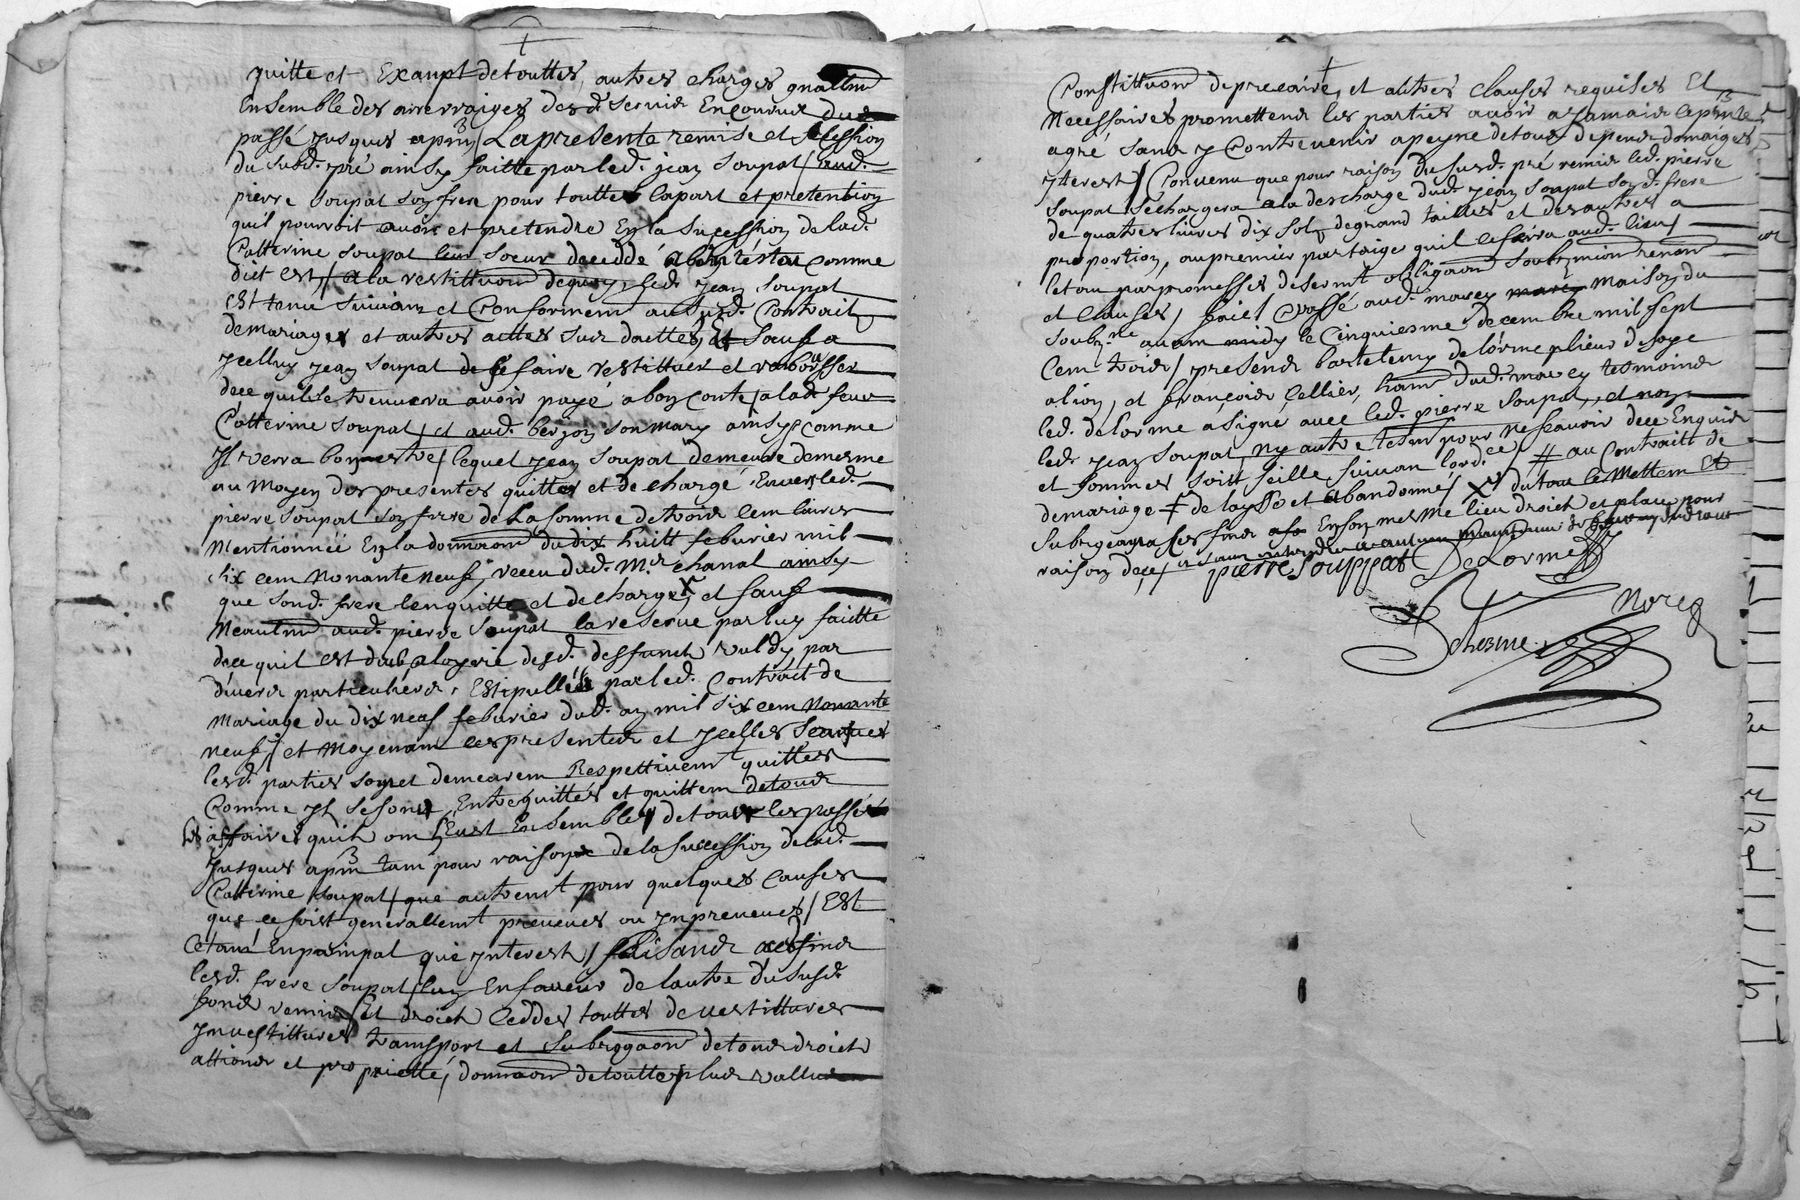 quitte et Exampt de touttes, autres charges
Ensemble des arrerraiges desd. servis Encourus du
passé jusques a pnt / La presente remise et Cession
du susd. pré ainsy faitte par led. jean soupat / aud.
pierre soupat son frere pour toutte la part et pretention
quil pourroit avoir et pretendre En la sucession de lad.
Catterine soupat leur soeur deceddé abintéstat comme
dict est / a la restittuon dequoy led. jean soupat
est tenu suivant et Conformemt au susd. Contrait
de mariages et autres attes sus dattes, Et sauf a
jcelluy jean soupat de se faire restittuer et rambousser
de ce quil se treuvera avoir payé a bon conte / a lad. feue
Catterine soupat, et aud. berjon son mary ainsy comme
Jl verra bon estre / lequel jean soupat demeure de mesme
au moyen des presentes quitte et de chargé Envers led.
pierre soupat son frere de La somme de trois cent livres
Mentionnée En la donnaon du dix huitt feburier mil
six cent nonante neuf, receu dud. Mr. chanal ainsy
que sond. frere lenquitte et decharge et sauf
Neantm aud. pierre soupat la reserve par luy faitte
de ce quil est deub a loyrie desd. deffunct par
divers particuliers, Estipullée par led. Contrait de
Mariage du dix neuf feburier dud. an mil six cent nonante
neuf / et Moyenant ces presentes et jcelles
lesd. parties sont et demeurent Respettivemt quittes
Comme jls se sont Entrequittes et quittent de tous
les affaires quils ont Eust Ensemble de tous les passés
jusques a pnt tant pour raison de la sucession de lad.
Catterine soupat / que autremt pour quelques causes
que ce soist generallemt preveues ou jnpreveues / Est
Cetant En painpal que jnterest / faisant
lesd. frere soupat / lun En faveur de lautre du susd.
fond remis Et droict ceddes touttes devestittures
jnvestittures transport et subrogaon de tous droicts
attions et proprietté, donnaon de toutte plus vallue
Constittuon de precaire, et autres clauses requises Et
Necessaires promettent les parties avoir a jamais le pnt
agré sans y Contrevenir a peyne de tous depens domaiges
jnterest / Convenu que pour raison du susd. pré remis led. pierre
soupat se chargera a la descharge dud. jean soupat sond. frere
de quatres livres dix sols de grand tailles et des autres a
proportion, au premier partaige quil se faira aud. lieu /
le tou par promesses de sermt obligaon soubmion renon
et clauses / faict et passé aud. marcy maison du
soubzne avant midy le Cinquiesme decembre mil sept
Cent trois / present bartelemy delorme plieur de soye
a lion, et françois Cellier, dud. marcy tesmoins
led. delorme a signé avec led. pierre soupat, et non
led. jean soupat, ny autre tesm pour ne scavoir de ce Enquis
et sommes soist seille suivant lord.ce # au Contraitt de
de mariage # de laysse et abandonne / X du tout le Mettent Et
subrogeant a ses En son mesme lieu droict et place pour
raison de ce /
pierre souppat Delorme
Noreg
Delhosme